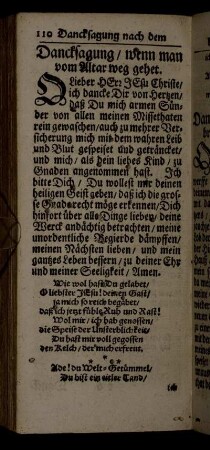 110 Dancksagung nach dem
Dancksagung / wenn man
vom Altar weg gehet.
O Lieber HErr JEsu Christe /
ich dancke Dir von Hertzen /
daß Du mich armen Sün-
der von allen meinen Missethaten
rein gewaschen / auch zu mehrer Ver-
sicherung mich mit dem wahren Leib
und Blut gespeiset und geträncket /
und mich / als dein liebes Kind / zu
Gnaden angenommen hast. Ich
bitte Dich / Du wollest mir deinen
heiligen Geist geben / daß ich die gros-
se Gnade recht möge erkennen / Dich
hinfort über alle Dinge lieben / deine
Werck andächtig betrachten / meine
unordentliche Begierde dämpffen /
meinen Nächsten lieben / und mein
gantzes Leben bessern / zu deiner Ehr
und meiner Seeligkeit / Amen.
Wie wol hast Du gelabet /
O liebster JEsu! deinen Gast /
ja mich so reich begabet /
daß ich jetzt fühle Ruh und Rast!
Wol mir / ich hab genossen /
die Speise der Unsterblichkeit /
Du hast mir voll gegossen
den Kelch / der mich erfreut.
Ade! du Welt-Getümmel /
Du bist ein eitler Tand /